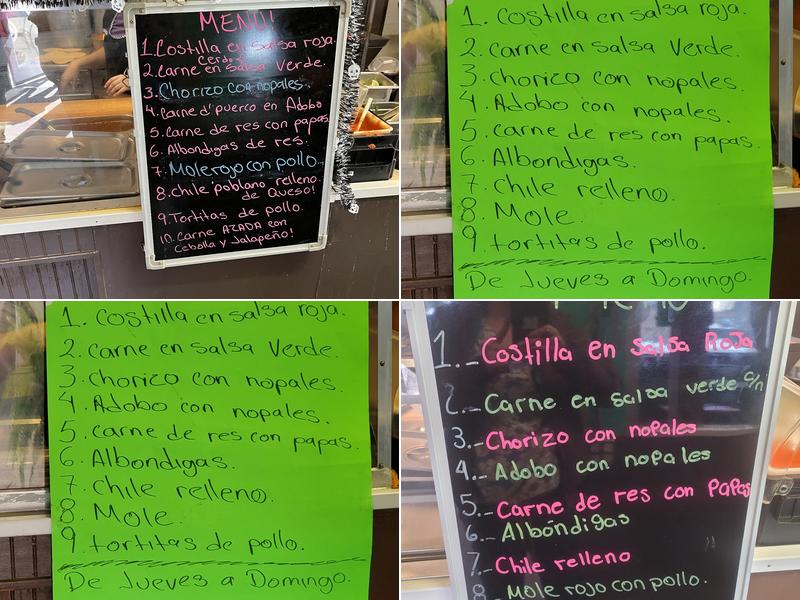 MENU!
1. Costilla en salsa roja.
cerdo
2. Carne en salsa Verde.
3. Chorizo con nopales.
4. Carne d' puerco en Adobo
5. Carne de res con papas.
6. Albondigas de res.
7. Mole rojo con pollo.
8. chile poblano relleno.
de Queso!
9. Tortitas de pollo.
10. Carne AZADA con
Cebolla y Jalapeño!
1. Costilla en salsa roja.
2. Carne en salsa Verde.
3. chorizo con nopales.
4. Adobo con nopales.
5. Carne de res con papas.
6. Albondigas.
7. Chile relleno.
8. Mole.
9. tortitas de pollo.
De Jueves a Domingo.
1. Costilla en salsa roja.
2. Carne en salsa Verde.
3. chorizo con nopales.
4. Adobo con nopales.
5. Carne de res con papas.
6. Albondigas.
7. Chile relleno.
8. Mole.
9. tortitas de pollo.
De Jueves a Domingo.
1._ Costilla en Salsa Roja
2._ Carne en salsa verde c/n
3._ Chorizo con nopales
4._ Adobo con nopales
5._ Carne de res con Papas
6._ Albóndigas
7._ Chile relleno
8. Mole rojo con pollo.